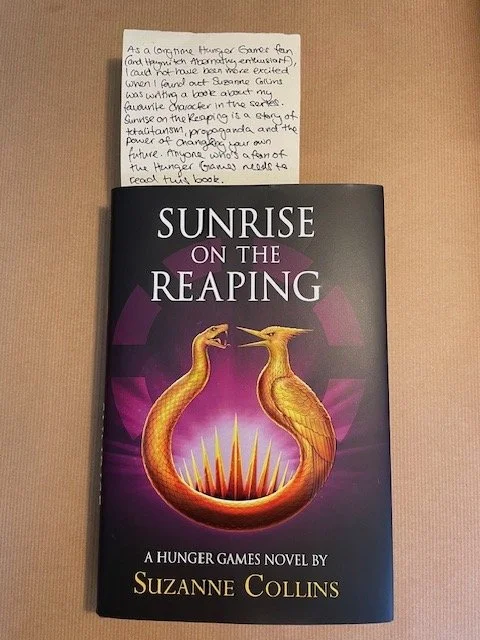 As a longtime Hunger Games fan
(and Haymitch Abernathy enthusiast),
I could not have been more excited
when I found out Suzanne Collins
was writing a book about my
favourite character in the series.
Sunrise on the Reaping is a story of
totalitarism, propaganda and the
power of changing your own
future. Anyone who's a fan of
the Hunger Games needs to
read this book.
SUNRISE
ON THE
REAPING
A HUNGER GAMES NOVEL BY
SUZANNE COLLINS